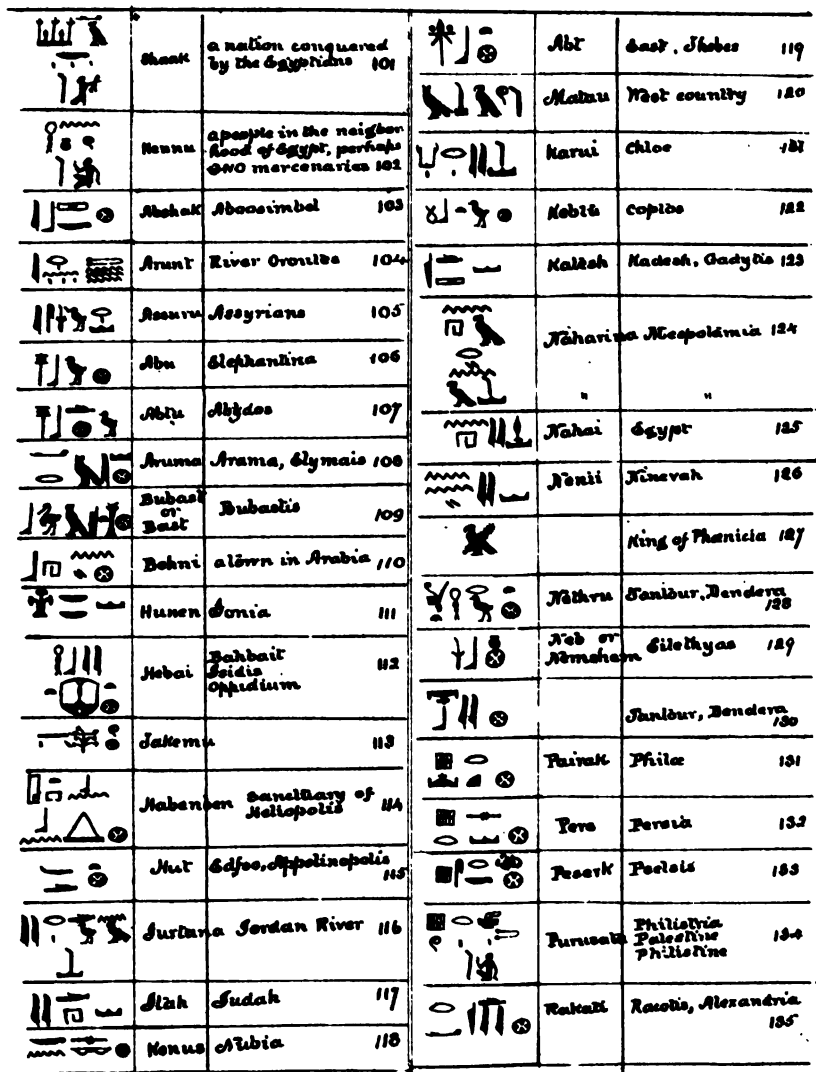 Shaak a nation conquered
by the Egyptians 101
Hennu a people in the neigbor
hood of Egypt, perhaps
ONO mercenaries 102
Abshak Aboosimbel 103
Arunt River Orontes 104
Assuru Assyrians 105
Abu Elephantina 106
Abtu Abydos 107
Aruma Arama, Elymais 108
Bubast
or
Bast Bubastis 109
Behni a town in Arabia 110
Hunen Ionia 111
Hebai Bahbait
Isidis
Oppidium 112
Jakemu 113
Habenben Sanctuary of
Heliopolis 114
Hut Edfoo, Appolinopolis
115
Iurtuna Jordan River 116
Iltah Judah 117
Kenus Nubia 118
Abt East, Thebes 119
Matau West country 120
Karui Chloe 121
Kebtu Coptos 122
Katesh Kadesh, Cadytis 123
Naharina Mesopotamia 124
" "
Nahai Egypt 125
Nineveh 126
King of Phœnicia 127
Tantour, Dendera
128
Neb or
Eilethyas 129
Tantour, Dendera
130
Pairak Philæ 131
Pers Persia 132
Peserk Pselsis 133
Purusata Philistria
Palestine
Philistine 134
Rakati Racotis, Alexandria
135